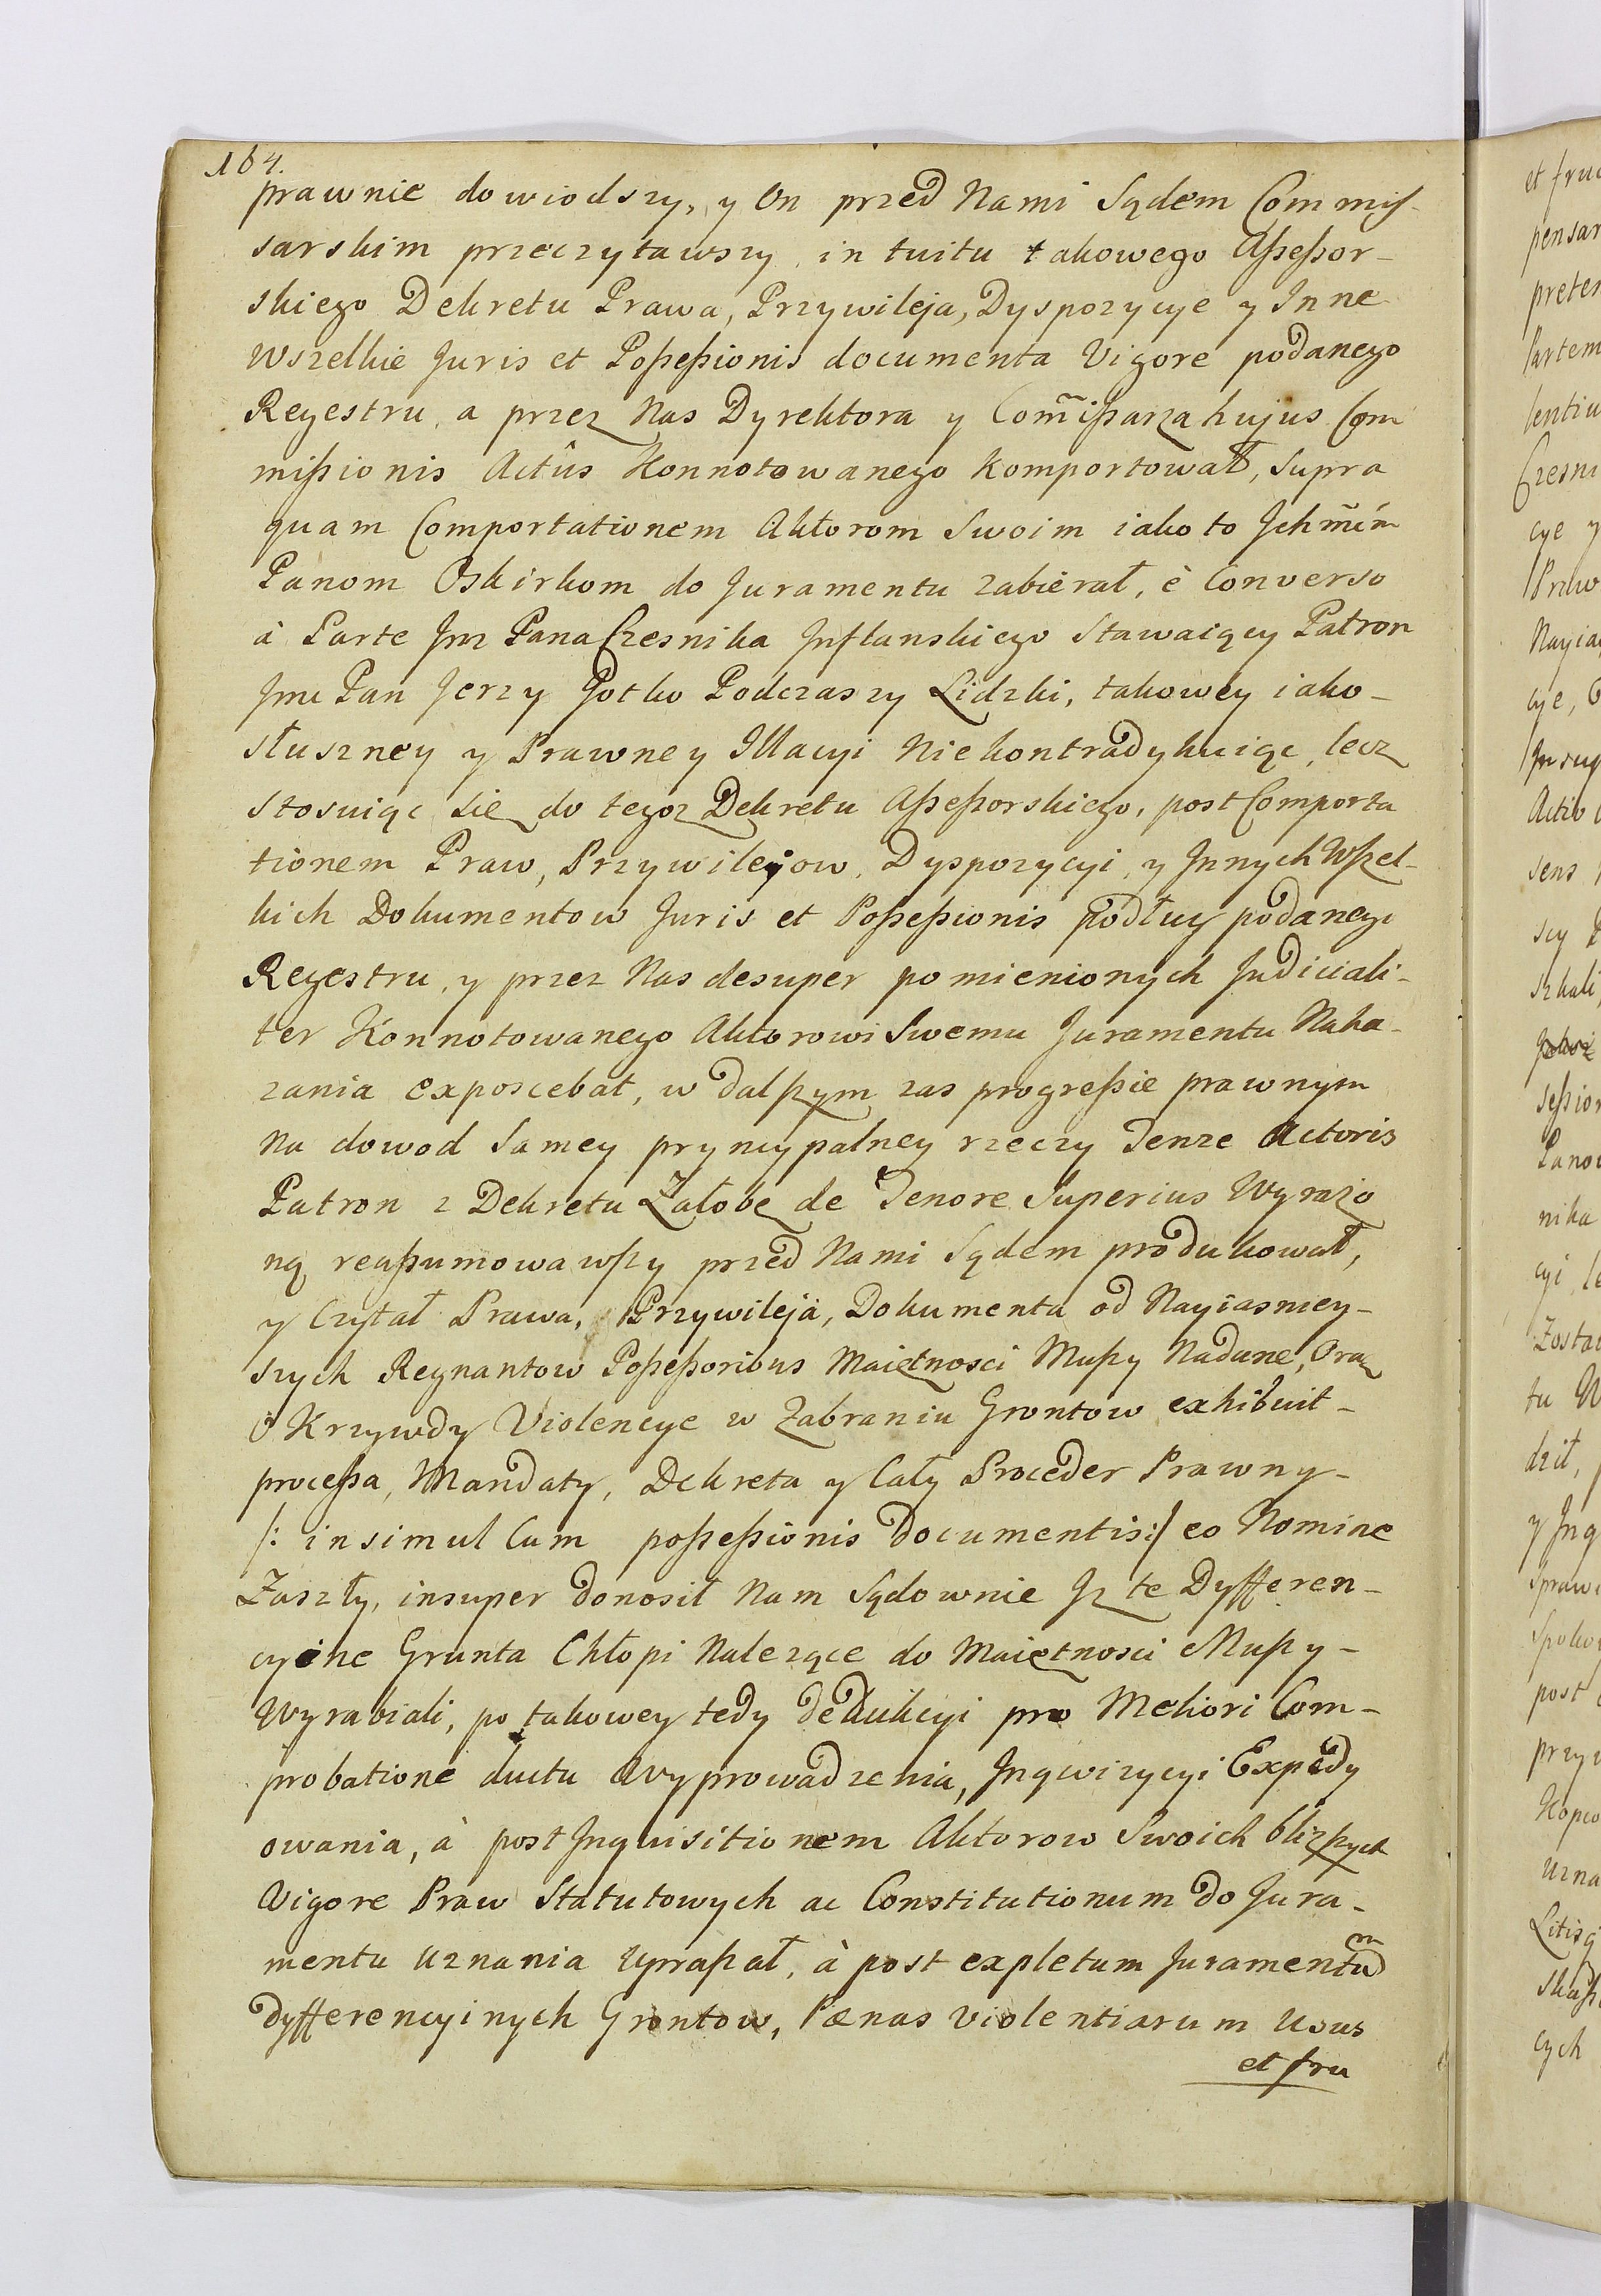 164.
prawnie dowiodszy, y On przed Nami Sądem Commis-
sarskim przeczytawszy, intuitu takowego Assessor-
skiego Dekretu Prawa, Przywileja, Dyspozycye y Inne
Wszelkie Juris et Possessionis documenta Vigore podanego
Regestru, a przez Nas Dyrektora y Com̃issarza hujus Com
missionis Actûs Konnotowanego komportował, Supra
quam Comportationem Aktorom Swoim iako to Ichm̃ćm
Panom Oskirkom do Juramentu zabierał, è Converso
à Parte Jmc Pana Czesnika Inflanskiego Stawaiący Patron
Jmc Pan Jerzy Gotko Podczaszy Lidzki, takowey iako-
słuszney y Prawney Illacyi Niekontradykuiąc, lecz
Stosuiąc się do tegoz Dekretu Assessorskiego, post Comporta
tionem Praw, Przywilejow, Dyspozycyi, y Innych Wszel-
kich Dokumentow Juris et Possessionis podług podanego
Regestru, y przez Nas desuper pomienionych Judiciali-
ter Konnotowanego Aktorowi Swemu Juramentu Naka-
zania exposcebat, w dalszym zas progressie prawnym
Na dowod Samey pryncypalney rzeczy Tenze Actoris
Patron z Dekretu Załobę de Tenore Superius Wyrazo
ną reassumowawszy przed Nami Sądem produkował,
y Czytał Prawa, Przywileja, Dokumenta od Nayiasniey-
szych Regnantow Possessoribus Maiętnosci Muszy Nadane, Oraz
O Krzywdy Violencye w Zabraniu Grontow exhibuit-
processa, Mandaty, Dekreta y Cały Proceder Prawny-
/: insimul Cum possessionis Documentis:/ eo Nomine
Zaszły, insuper donosił Nam Sądownie Iz te Dyfferen-
cyine Grunta Chłopi Nalezące do Maiętnosci Muszy-
Wyrabiali, po takowey tedy dedukcyi pro Meliori Com-
probatione ductu Wyprowadzenia, Inqwizycyi Expedy
owania, à post Inquisitionem Aktorow Swoich blizszych
Vigore Praw Statutowych ac Constitutionum do Jura-
mentu Uznania Upraszał, à post expletum Juramentum
dyfferencyinych Grontow, Pænas violentiarum Usus
et fru